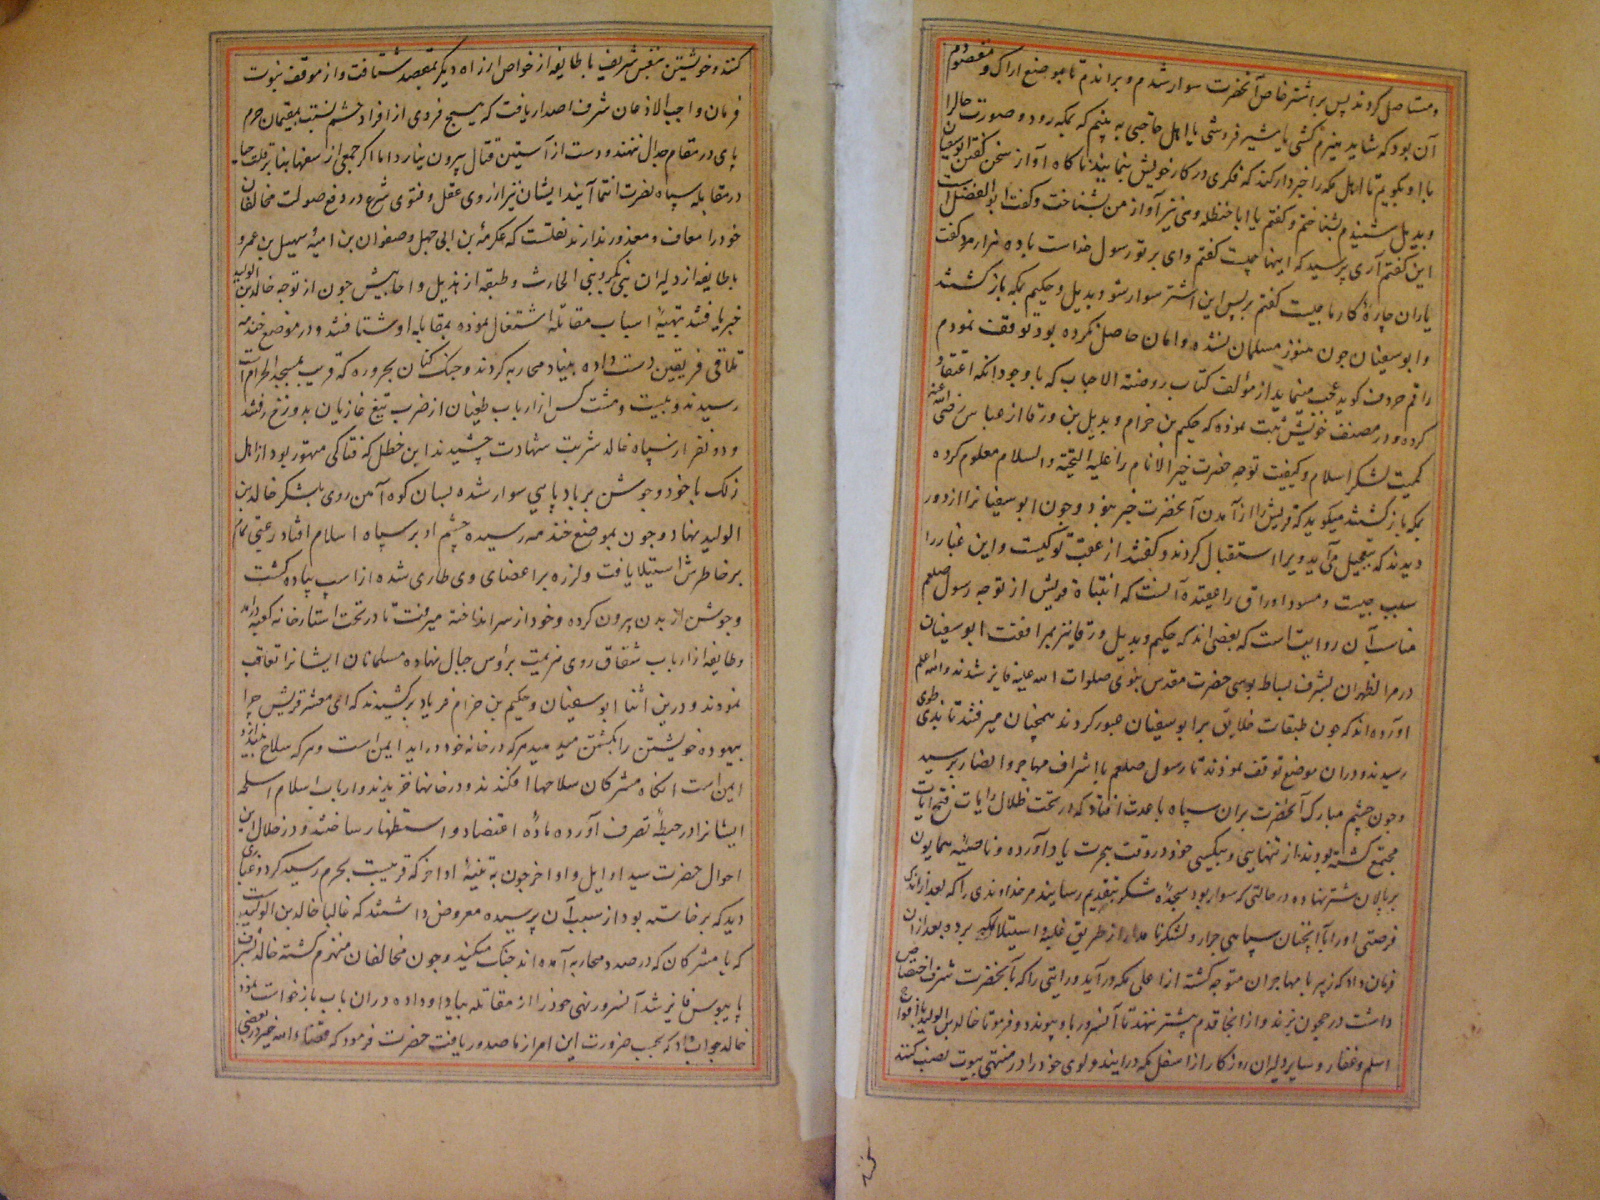 و مستاصل کردند پس بر اشتر خاص آنحضرت سوار شدم و براندم تا بموضع اراک و مقصودم
آن بود که شاید هیزم کشی یا شیر فروشی یا اهل حاجتی به بینم که بمکه رود و صورت حالرا
با او بگویم تا اهل مکه را خبردار کند که فکری در کار خویش بنمایند ناکاه آواز سخن کفتن ابوسفیان
و بدیل شنیدم بشناختم و کفتم یا ابا حنظله وی نیز آواز من بشناخت و کفت ابو الفضل است
این کفتم آری پرسید که اینها چیست کفتم وای بر تو رسول خداست با ده هزار مرد کفت
یاران چارهٔ کار ما چیست کفتم بر پس این اشتر سوار شو و بدیل و حکیم بمکه باز کشتند
و ابوسفیان چون هنوز مسلمان نشده و امان حاصل نکرده بود توقف نمودم
راقم حروف کوید عجب مینماید از مؤلف کتاب روضة الاحباب که با وجود انکه اعتقاد
کرده و در مصنف خویش ثبت نموده که حکیم بن حزام و بدیل بن ورقا از عباس رضی الله عنه
کمیت لشکر اسلام و کیفیت توجه حضرت خیر الانام را علیه التحیة والسلام معلوم کرده
بمکه باز کشتند میکوید که قریش را از آمدن آنحضرت خبر نبود و چون ابوسفیانرا از دور
دیدند که بتعجیل می آید ویرا استقبال کردند و کفتند از عقب تو کیست و این غبار را
سبب چیست و مسود اوراق را عقیده آنست که انتباه قریش از توجه رسول صلعم
مناسب آن روایت است که بعضی اند که حکیم و بدیل ورقا نیز بمرافقت ابوسفیان
در مر الظهران بشرف بساط بوسی حضرت مقدس نبوی صلوات الله علیه فایز شدند والله اعلم
آورده اند که چون طبقات خلایق بر ابوسفیان عبور کردند همچنان میرفتند تا بذی طوی
رسیدند و دران موضع توقف نمودند تا رسول صلعم با اشراف مهاجر و انصار برسید
و چون چشم مبارک آنحضرت بران سپاه با عدت افتاد که در تحت ظلال رایات فتح ایات
مجتمع کشته بودند از تنهایی و بیکسی خود در وقت هجرت یاد آورده و ناصیه همایون
بر پالان شتر نهاده در حالتی که سوار بود سجدهٔ شکر بتقدیم رسانید مر خداوندی را که بعد از اندک
فرصتی او را با انچنان سپاهی جرار و لشکر نامدار از طریق غلبه و استیلا بمکه برده بعد ازان
فرمان داد که زبیر با مهاجران متوجه کشته از اعلی مکه در آید و رایتی را که بآنحضرت شرف اختصاص
داشت در حجون بزند و از انجا قدم پیشتر ننهد تا آنسرور باو پیوندد و فرمود تا خالد بن الولید با افواج
اسلم و غفار و سایر دلیران روزکار از اسفل مکه درایند و لوی خود را در منتهی بیوت نصب کنند
کنند و خویشتن بنفس شریف با طایفه از خواص از راه دیکر بمقصد شتافت و از موقف نبوت
فرمان واجب الاذعان شرف اصدار یافت که هیچ فردی از افراد حشم نسبت بمقیمان حرم
پای در مقام جدال ننهند و دست از آستین قتال بیرون نیارد اما اکر جمعی از سفها بنا بر قلت حیا
در مقابله سپاه نصرت انتما آیند ایشان نیز از روی عقل و فتوی شرع در دفع صولت مخالفان
خود را معاف و معذور ندارند نقلست که عکرمة بن ابی جهل و صفوان بن امیه و سهیل بن عمرو
با طایفه از دلیران بنی بکر و بنی الحارث و طبقه از هذیل و احابیش چون از توجه خالد بن الولید
خبر یافتند بتهیهٔ اسباب مقاتله اشتغال نموده بمقابله او شتافتند و در موضع خندمه
تلاقی فریقین دست داده بنیاد محاربه کردند و جنک کنان بحزوره که قریب بمسجد الحرام است
رسیدند و بیست و هشت کس از ارباب طغیان از ضرب تیغ غازیان بدوزخ رفتند
و دو نفر از سپاه خالد شربت شهادت چشیدند ابن خطل که فتاکی متهور بود از اهل
زلک با خود و جوشن بر باد پایی سوار شده بسان کوه آهن روی بلشکر خالد بن
الولید نهاد و چون بموضع خندمه رسیده چشم او بر سپاه اسلام افتاد رعبی تمام
بر خاطرش استیلا یافت و لرزه بر اعضای وی طاری شده از اسپ پیاده کشت
و جوشن از بدن بیرون کرده و خود از سر انداخته میرفت تا در تحت استار خانه کعبه درامد
و طایفه از ارباب شقاق روی هزیمت برؤس جبال نهاده مسلمانان ایشانرا تعاقب
نمودند و درین اثنا ابوسفیان و حکیم بن حزام فریاد برکشیدند که ای معشر قریش چرا
بیهوده خویشتن را بکشتن میدهید هر که در خانه خود دراید ایمن است و هر که سلاح بیندازد
ایمن است انکاه مشرکان سلاحها افکندند و در خانها خزیدند و ارباب اسلام اسلحه
ایشانرا در حیطهٔ تصرف آورده مادهٔ اعتضاد و استظهار ساختند و در خلال این
احوال حضرت سید اوایل و اواخر چون به ثنیهٔ اذاخر که قریبست بحرم رسید کرد و غباری
دید که برخاسته بود از سبب آن پرسیده معروض داشتند که غالبا خالد بن الولید است
که با مشرکان که در صدد محاربه آمده اند جنک میکنید و چون مخالفان منهزم کشته خالد بشرف
پایبوس فایز شد آنسرور نهی خود را از مقاتله بیاد او داده دران باب بازخواست نمود
خالد جواب داد که بحسب ضرورت این امر از ما صدور یافت حضرت فرمود که قضاء الله خیر و بعضی